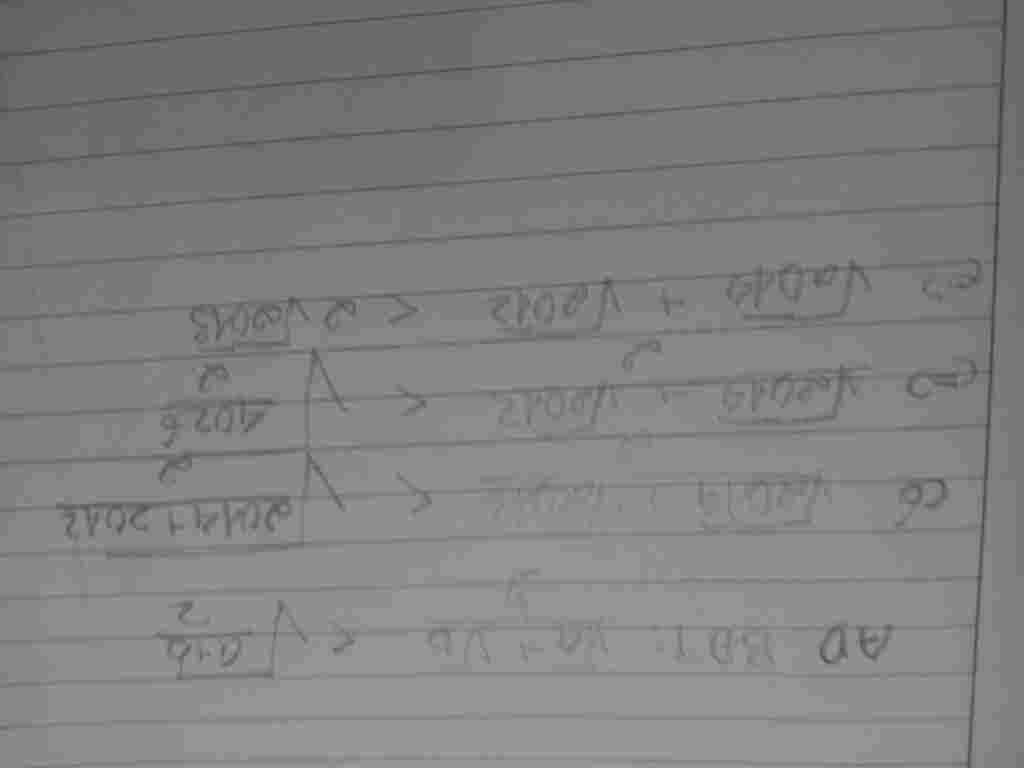 AD BĐT: √a + √b / 2 < √(a+b / 2)
Có √2014 + √2012 / 2 < √(2014+2012 / 2)
<=> √2014 + √2012 / 2 < √(4026 / 2)
<=> √2014 + √2012 < 2√2013